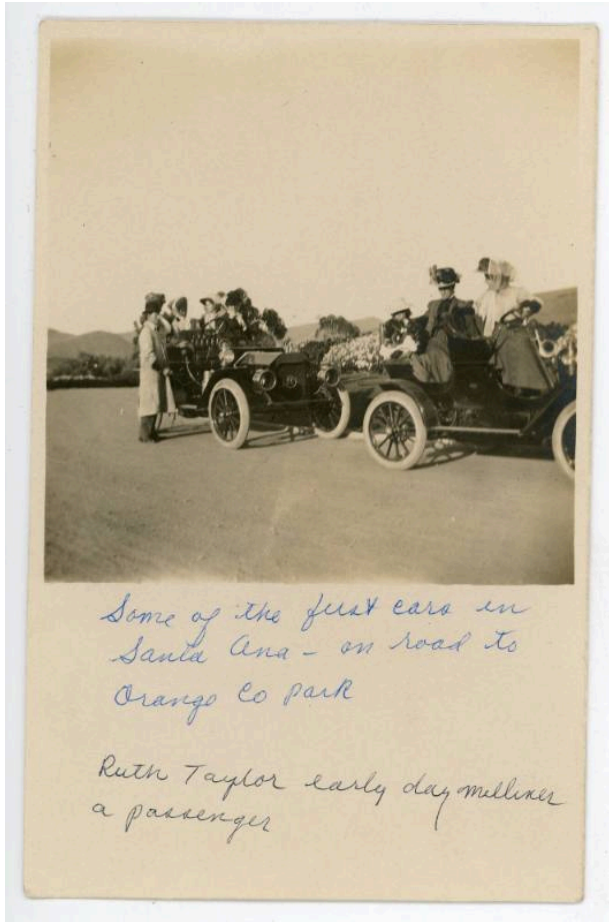 Some of the first cars in
Santa Ana - on road to
Orange Co park
Ruth Taylor early day milliner
a passenger